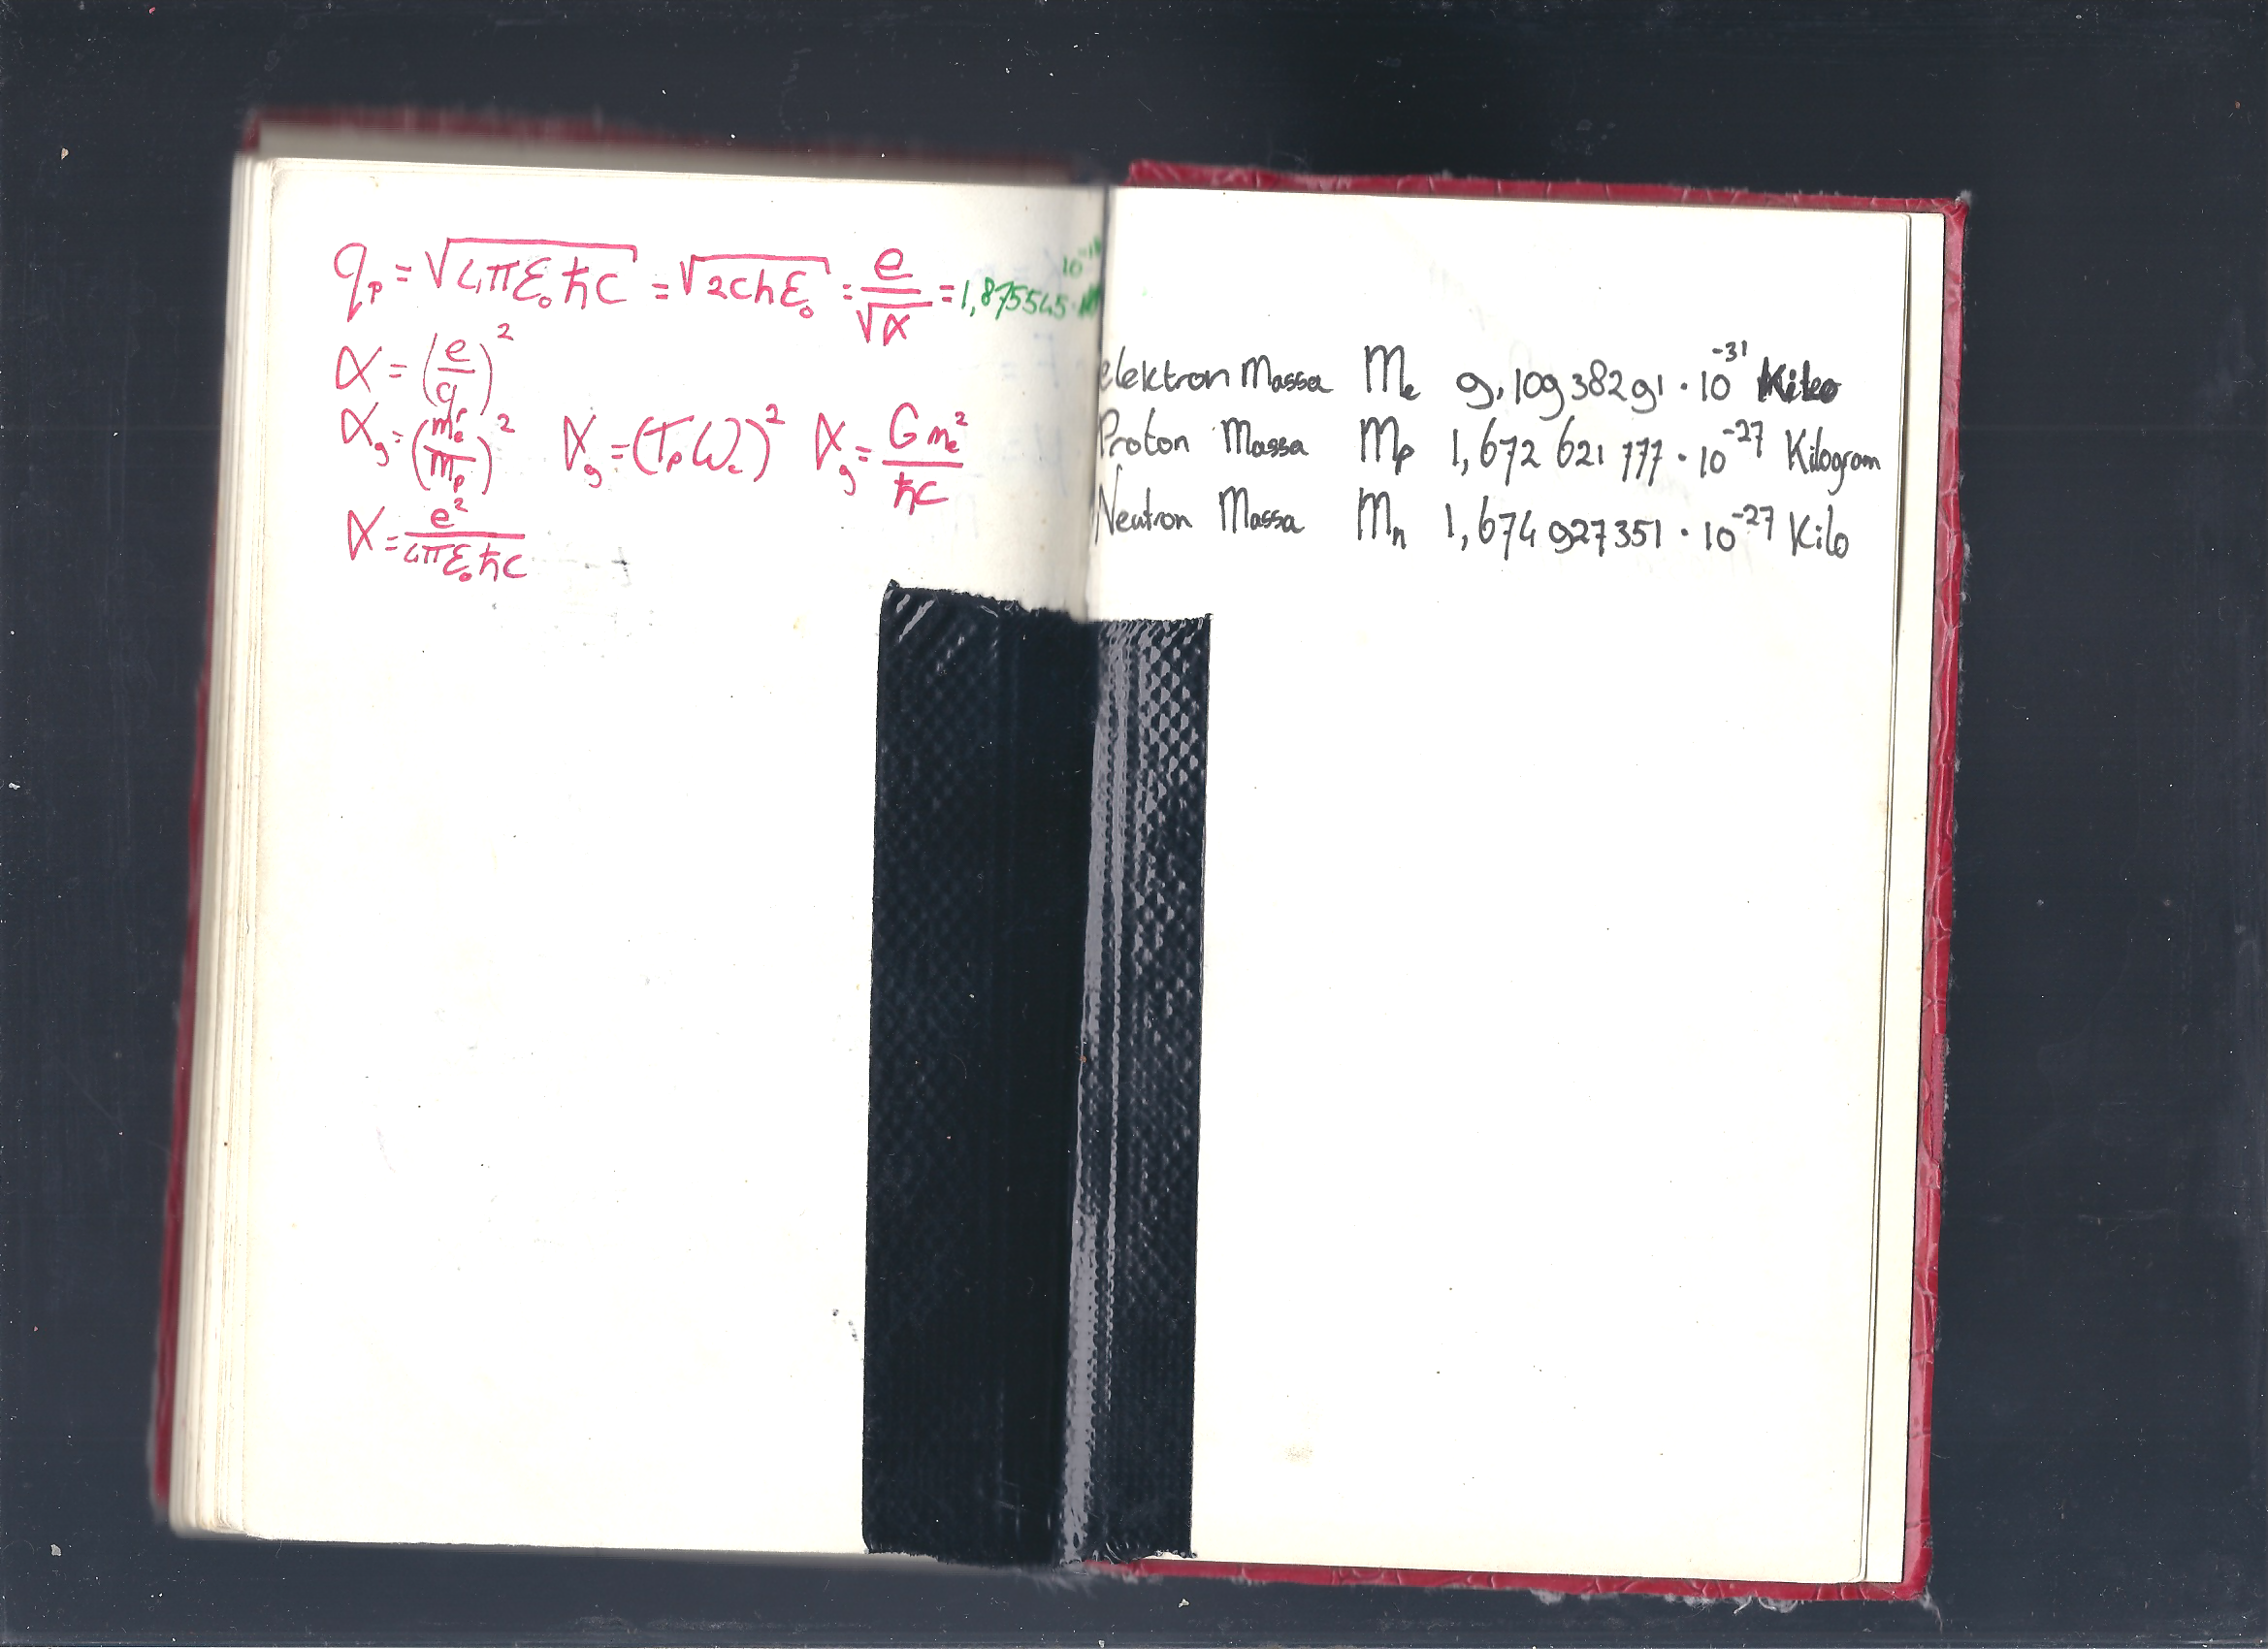 q_p = √(4πε₀ħc) = √(2chε₀) = e/√α = 1,875545 · 10⁻¹⁸
α = (e/q_p)²
α_g = (m_e/m_p)² α_g = (T_p ω_c)² α_g = G m_e²/ħc
α = e²/4πε₀ħc
elektron Massa M_e 9,10938291 · 10⁻³¹ Kilo
Proton Massa M_p 1,672 621 777 · 10⁻²⁷ Kilogram
Neutron Massa M_n 1,674 927 351 · 10⁻²⁷ Kilo